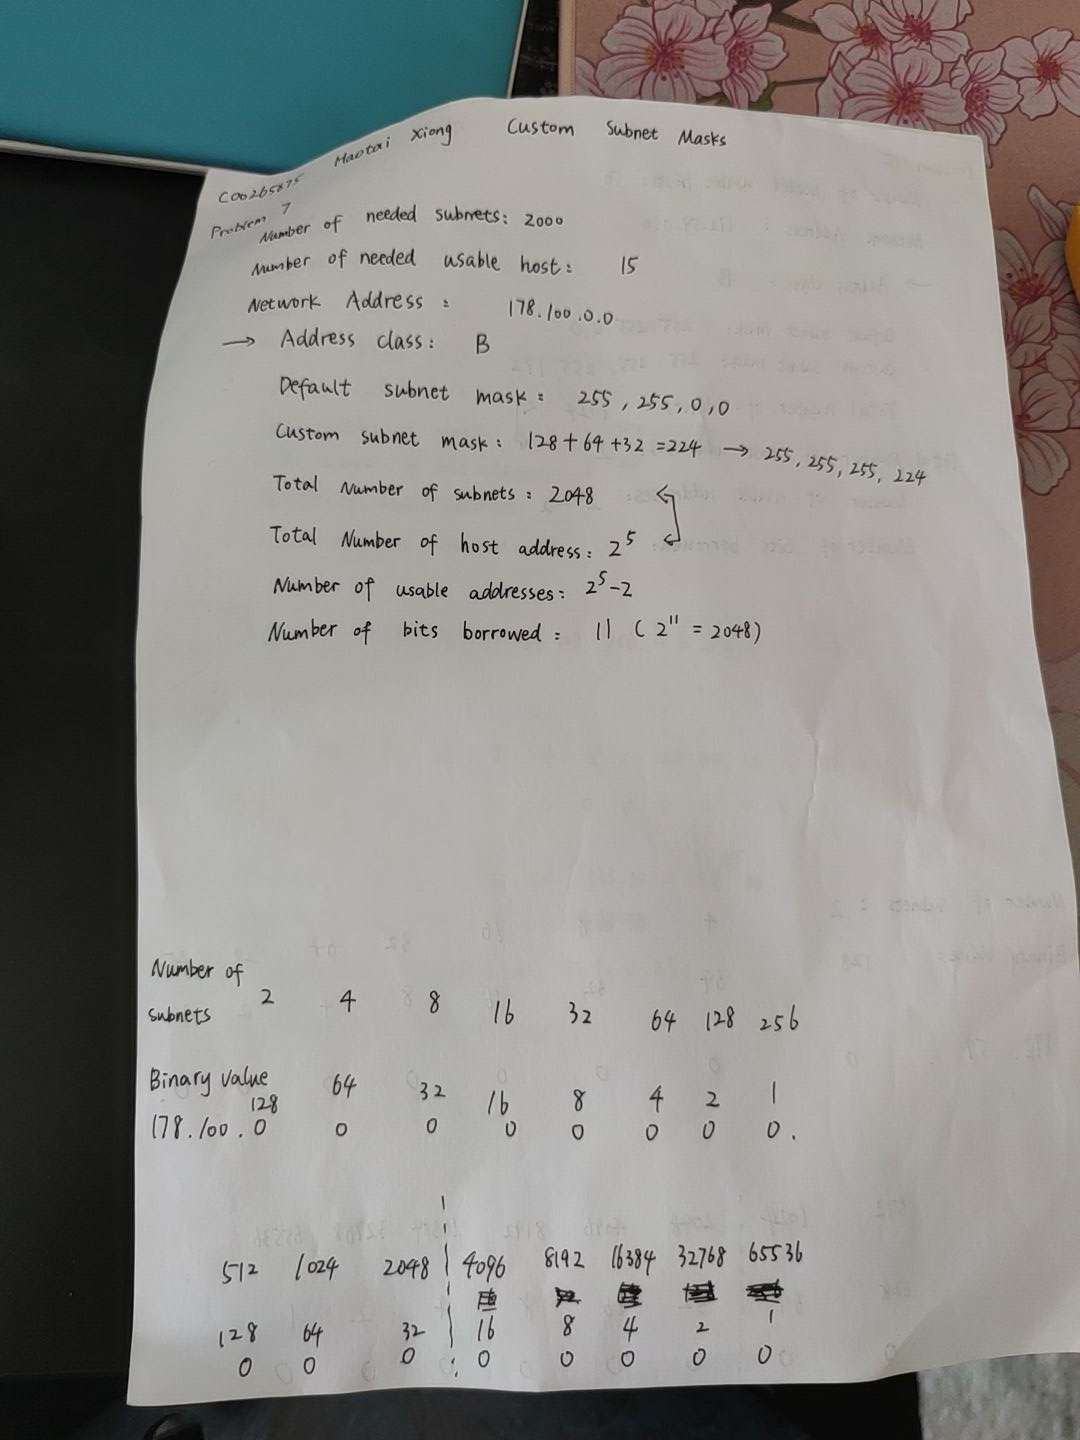 Haotai Xiong Custom Subnet Masks
C00265875
Problem 7
Number of needed subnets: 2000
Number of needed usable host: 15
Network Address: 178.100.0.0
→ Address class: B
Default subnet mask: 255, 255, 0, 0
Custom subnet mask: 128+64+32=224 → 255, 255, 255, 224
Total Number of subnets: 2048
Total Number of host address: 2⁵
Number of usable addresses: 2⁵-2
Number of bits borrowed: 11 (2¹¹ = 2048)
Number of
subnets 2 4 8 16 32 64 128 256
Binary value
128 64 32 16 8 4 2 1
178.100.0 0 0 0 0 0 0 0.
512 1024 2048 4096 8192 16384 32768 65536
128 64 32 16 8 4 2 1
0 0 0 : 0 0 0 0 0